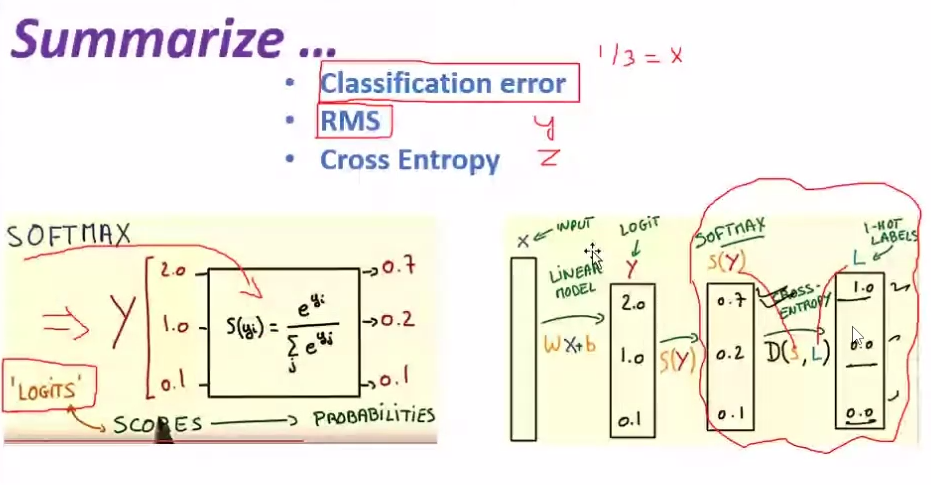 Summarize ...
1/3 = x
• Classification error
• RMS
y
• Cross Entropy
z
SOFTMAX
Y
2.0
1.0
0.1
S(yi) = e^yi / Σj e^yj
0.7
0.2
0.1
'LOGITS'
SCORES
PROBABILITIES
X
INPUT
LINEAR
MODEL
WX+b
LOGIT
Y
2.0
1.0
0.1
S(Y)
SOFTMAX
S(Y)
0.7
0.2
0.1
CROSS-
ENTROPY
D(S, L)
1-HOT
LABELS
L
1.0
0.0
0.0